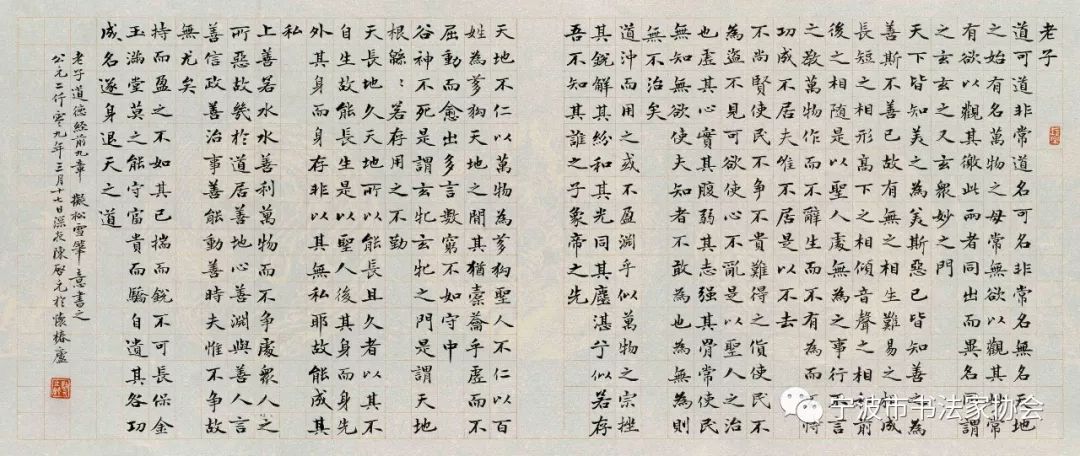 老子
道可道非常道名可名非常名無名天地
之始有名萬物之母常無欲以觀其妙常
有欲以觀其徼此兩者同出而異名同謂
之玄玄之又玄衆妙之門
天下皆知美之為美斯惡已皆知善之為
善斯不善已故有無之相生難易之相成
長短之相形高下之相傾音聲之相和前
後之相隨是以聖人處無為之事行不言
之教萬物作而不辭生而不有為而不恃
功成不居夫唯不居是以不去
不尚賢使民不争不貴難得之貨使民不
為盜不見可欲使心不亂是以聖人之治
也虛其心實其腹弱其志强其骨常使民
無知無欲使夫知者不敢為也為無為則
無不治矣
道沖而用之或不盈淵乎似萬物之宗挫
其銳解其紛和其光同其塵湛兮似若存
吾不知其誰之子象帝之先
天地不仁以萬物為芻狗聖人不仁以百
姓為芻狗天地之間其猶橐籥乎虛而不
屈動而愈出多言數窮不如守中
谷神不死是謂玄牝玄牝之門是謂天地
根緜〻若存用之不勤
天長地久天地所以能長且久者以其不
自生故能長生是以聖人後其身而身先
外其身而身存非以其無私耶故能成其
私
上善若水水善利萬物而不争處衆人之
所惡故幾於道居善地心善淵與善人言
善信政善治事善能動善時夫惟不争故
無尤矣
持而盈之不如其已揣而銳不可長保金
玉滿堂莫之能守富貴而驕自遺其咎功
成名遂身退天之道
老子道德經前九章 擬松雪筆意書之
公元二仟零九年三月十七日深夜陳啟元於懷椿廬
宁波市书法家协会